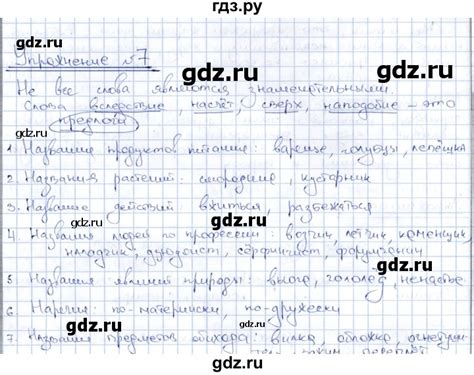 гдз.ру
gdz.ru gdz.ru
Упражнение №7
gdz.ru
Не все слова являются знаменательными.
Слова вследствие, насчёт, сверх, наподобие – это
предлоги
gdz.ru gdz.ru
1. Название продуктов питания: варенье, голубцы, лепёшка
2. Названия растений: смородина, кустарник
gdz.ru
3. Название действий вжиться, разбежаться
4. Названия людей по профессии: водчик, лётчик, каменщик
gdz.ru gdz.ru
наладчик, дзюдоист, сёрфингист,
5. Название явлений природы: вьюга, гололёд, ненастье
gdz.ru
6 Наречия: по-матерински, по-дружески
gdz.ru gdz.ru
7. Названия предметов обихода: вилка, обложка,